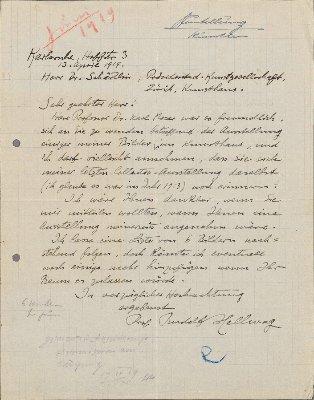 1919
Ausstellung
Karlsruhe, Hoffstr. 3
13. April 1919.
Herrn Dr. Schärtlin, Präsident d. Kunstgesellschaft,
Zürich, Kunsthaus.
Sehr geehrter Herr!
Herr Professor Dr. Karl Moser war so freundlich,
sich an Sie zu wenden betreffend der Ausstellung
einiger meiner Bilder im Kunsthaus, und
ich darf vielleicht annehmen, dass Sie sich
meiner letzten Collectiv-Ausstellung daselbst
(ich glaube es war im Jahre 1913) noch erinnern.
Ich wäre Ihnen dankbar, wenn Sie
mir mitteilen wollten, wann Ihnen eine
Ausstellung meinerseits angenehm wäre.
Ich lasse eine Liste von 6 Bildern nach-
stehend folgen, doch könnte ich eventuell
noch einige mehr hinzufügen wenn Ihr
Raum es zulassen würde.
In vorzüglicher Hochachtung
ergebenst
Prof. Rudolf Hellwag
R